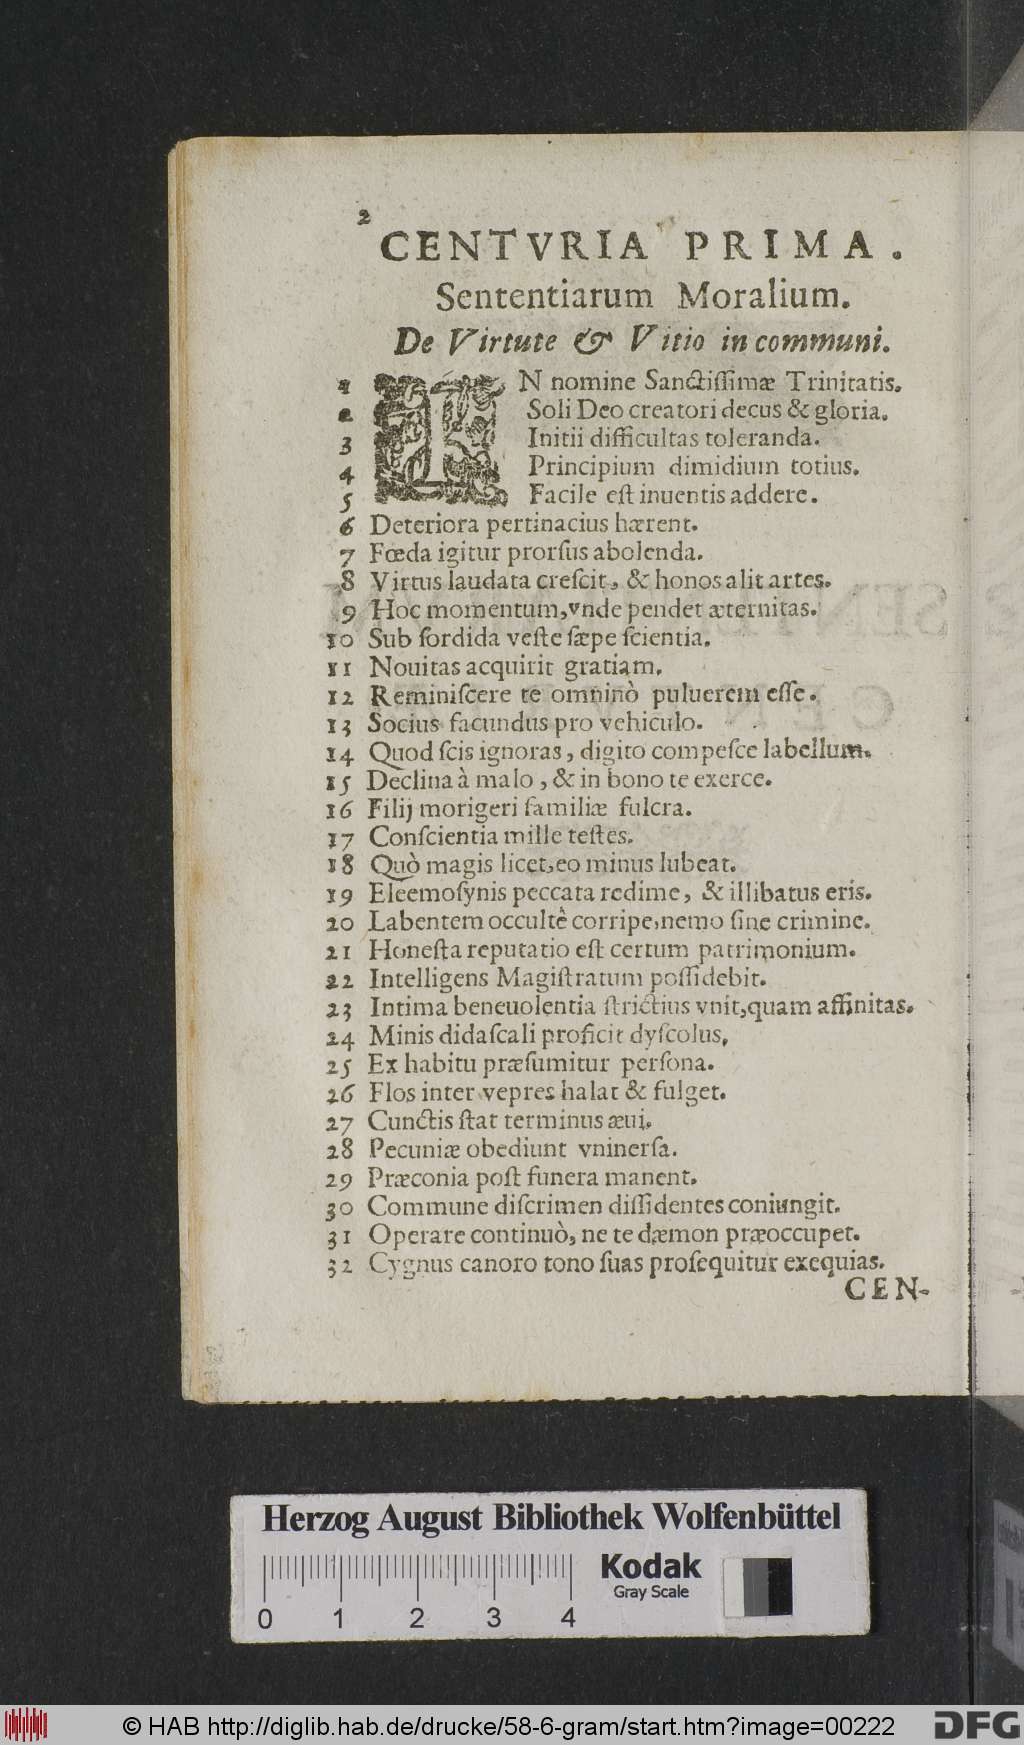 2
CENTVRIA PRIMA.
Sententiarum Moralium.
De Virtute & Vitio in communi.
1 IN nomine Sanctiſſimæ Trinitatis.
2 Soli Deo creatori decus & gloria.
3 Initii difficultas toleranda.
4 Principium dimidium totius.
5 Facile eſt inuentis addere.
6 Deteriora pertinacius hærent.
7 Fœda igitur prorſus abolenda.
8 Virtus laudata creſcit, & honos alit artes.
9 Hoc momentum, vnde pendet æternitas.
10 Sub ſordida veſte ſæpe ſcientia.
11 Nouitas acquirit gratiam.
12 Reminiſcere te omninò puluerem eſſe.
13 Socius facundus pro vehiculo.
14 Quod ſcis ignoras, digito compeſce labellum.
15 Declina à malo, & in bono te exerce.
16 Filij morigeri familiæ fulcra.
17 Conſcientia mille teſtes.
18 Quò magis licet, eo minus lubeat.
19 Eleemoſynis peccata redime, & illibatus eris.
20 Labentem occultè corripe, nemo ſine crimine.
21 Honeſta reputatio eſt certum patrimonium.
22 Intelligens Magiſtratum poſſidebit.
23 Intima beneuolentia ſtrictius vnit, quam affinitas.
24 Minis didaſcali proficit dyſcolus,
25 Ex habitu præſumitur perſona.
26 Flos inter vepres halat & fulget.
27 Cunctis ſtat terminus æui.
28 Pecuniæ obediunt vninerſa.
29 Præconia poſt funera manent.
30 Commune diſcrimen diſſidentes coniungit.
31 Operare continuò, ne te dæmon præoccupet.
32 Cygnus canoro tono ſuas proſequitur exequias.
CEN-
Herzog August Bibliothek Wolfenbüttel
Kodak
Gray Scale
0 1 2 3 4
© HAB http://diglib.hab.de/drucke/58-6-gram/start.htm?image=00222
DFG